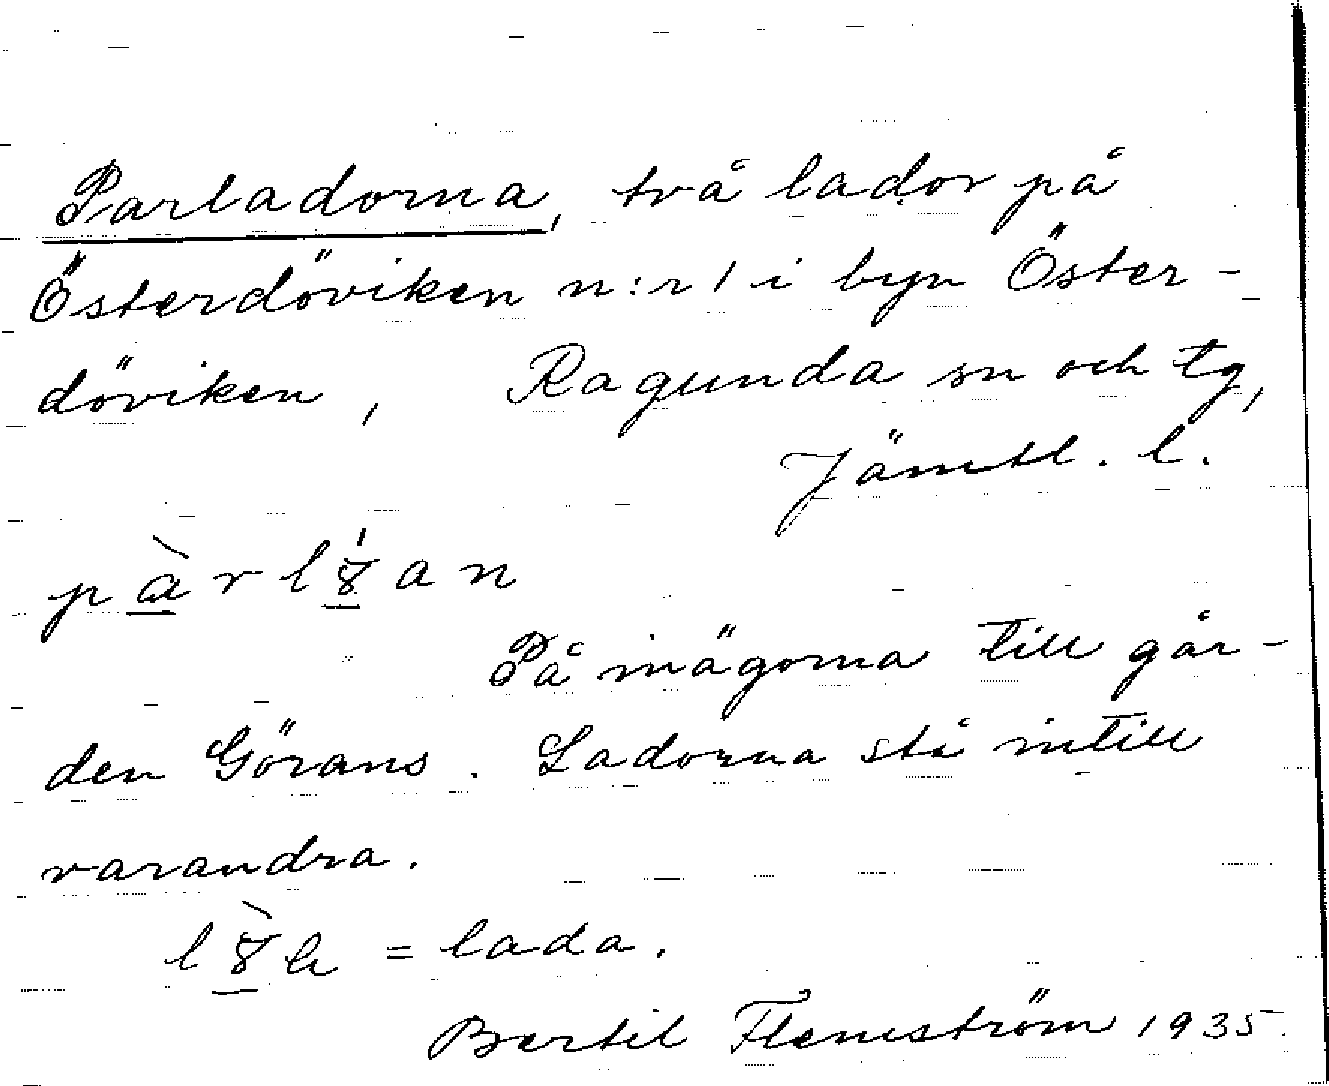 Parladorna, två lador på
Österdöviken n:r 1 i byn Öster-
döviken, Ragunda sn och tg,
Jämtl. l.
pàrl8́an
På inägorna till går-
den Görans. Ladorna stå intill
varandra.
l8̀a = lada.
Bertil Flemström 1935.